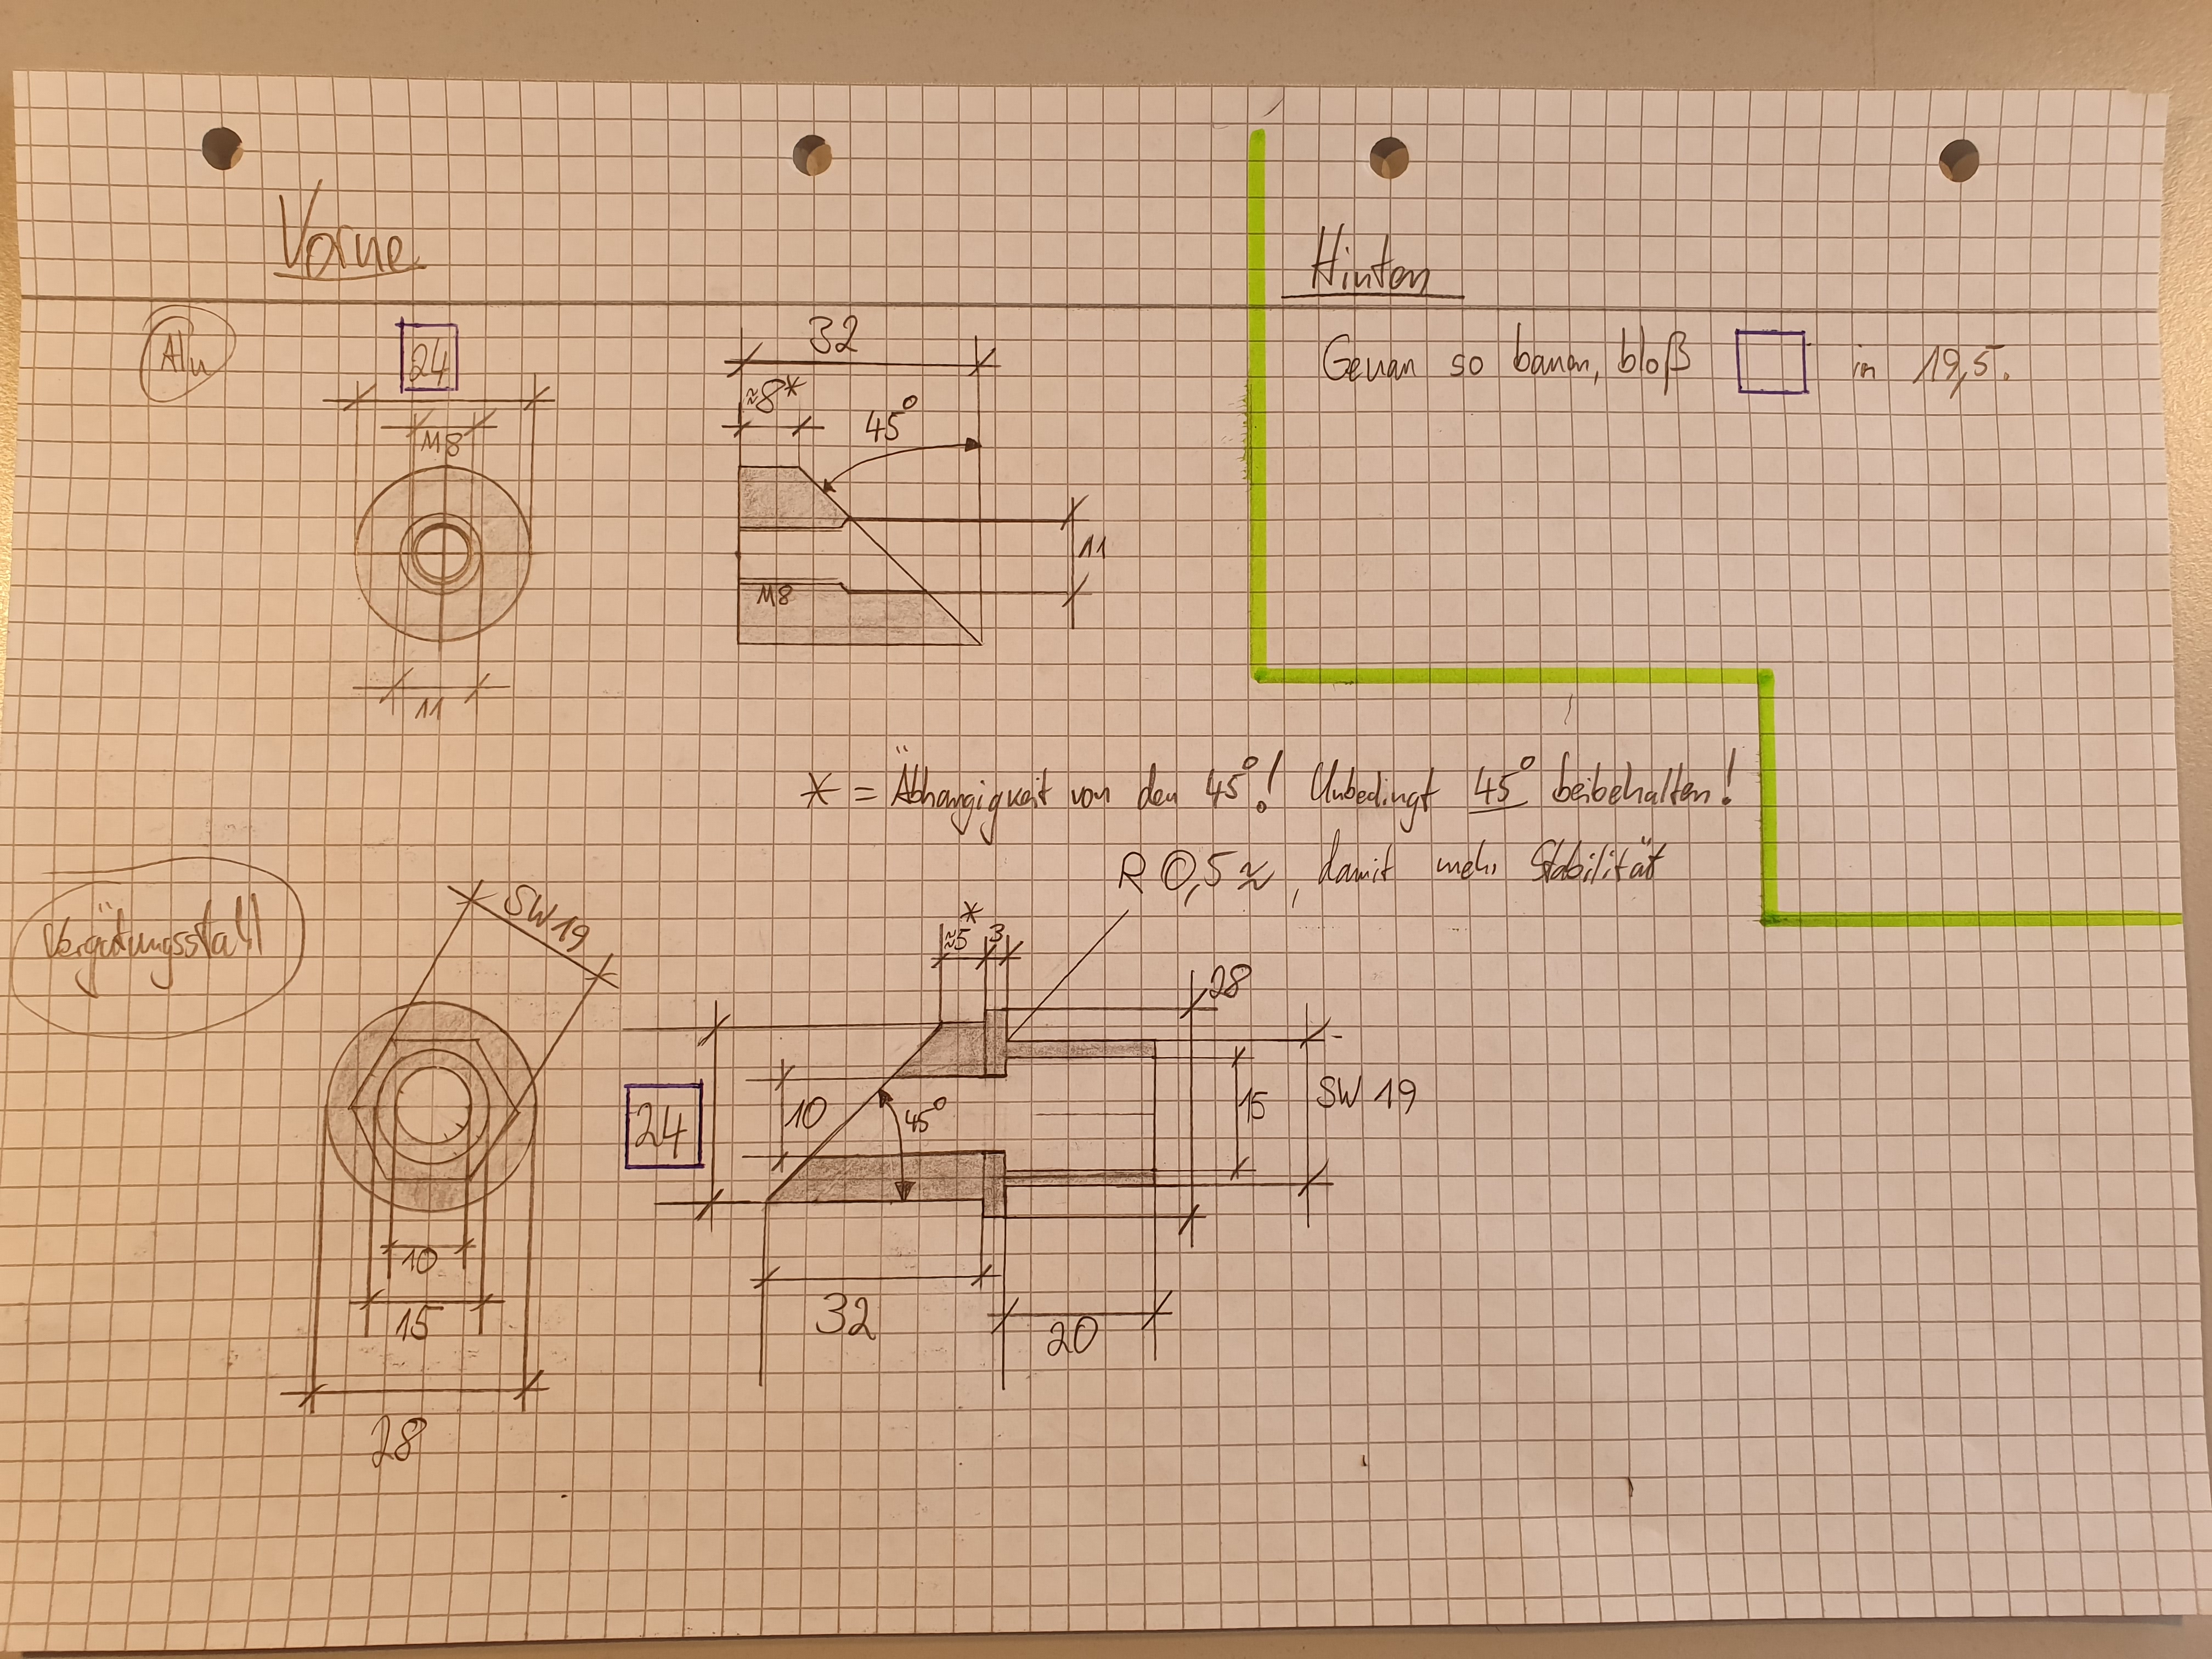 Vorne
Hinten
Alu
24
M8
11
32
≈8*
45°
11
M8
Genau so bauen, bloß □ in 19,5.
* = Äbhangigkeit von den 45°! Unbedingt 45° beibehalten!
R 0,5 ≈, damit mehr Stabilität
Vergütungsstahl
SW 19
10
15
28
*
≈5
3
28
24
10
45°
15
SW 19
32
20